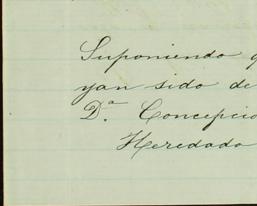 Suponiendo q
yan sido de
D.ª Concepcio
Heredado